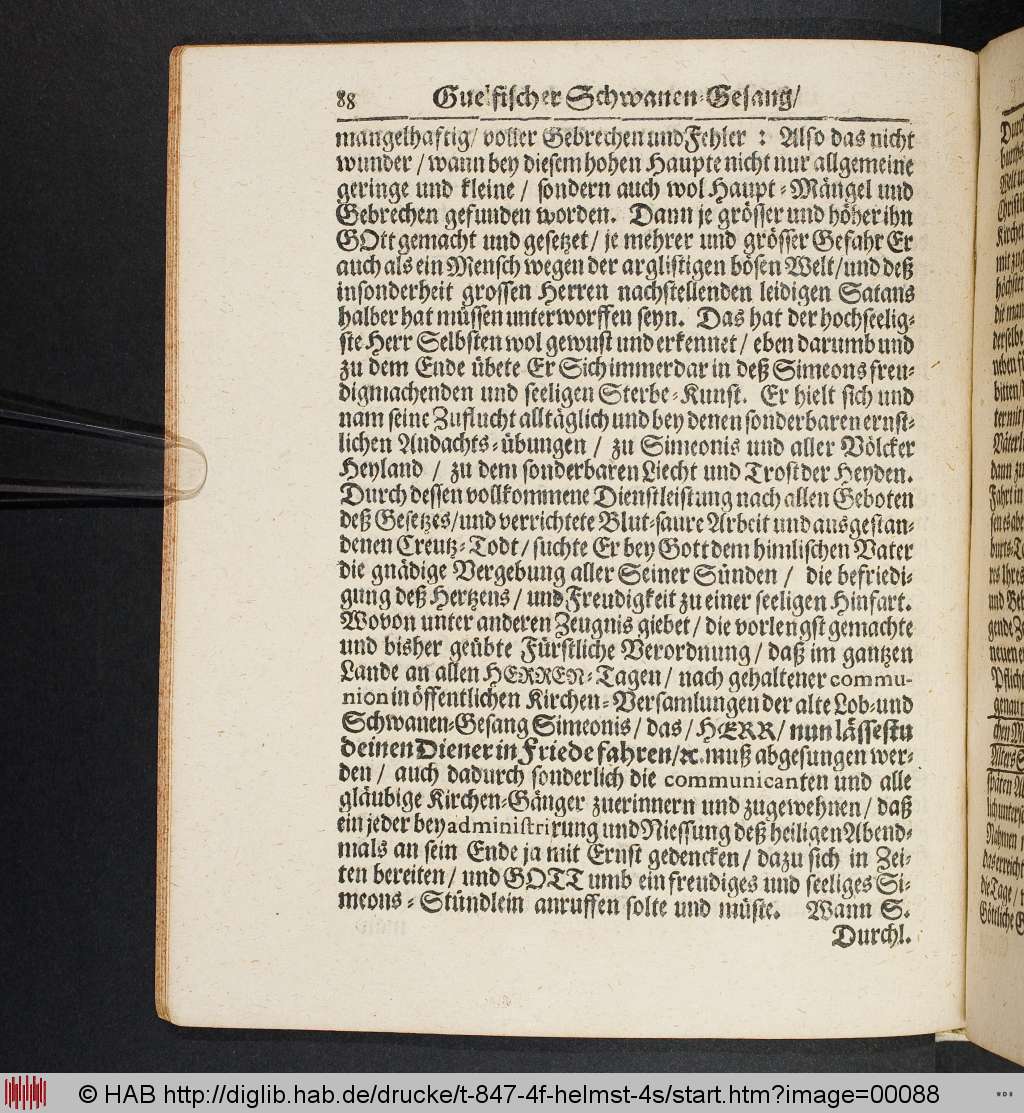 88 Guelfischer Schwanen-Gesang/
mangelhaftig/ voller Gebrechen und Fehler : Also das nicht
wunder / wann bey diesem hohen Haupte nicht nur allgemeine
geringe und kleine / sondern auch wol Haupt-Mängel und
Gebrechen gefunden worden. Dann je grösser und höher ihn
GOtt gemacht und gesetzet / je mehrer und grösser Gefahr Er
auch als ein Mensch wegen der arglistigen bösen Welt/und deß
insonderheit grossen Herren nachstellenden leidigen Satans
halber hat müssen unterworffen seyn. Das hat der hochseelig-
ste Herr Selbsten wol gewust und erkennet / eben darumb und
zu dem Ende übete Er Sich immerdar in deß Simeons freu-
digmachenden und seeligen Sterbe-Kunst. Er hielt sich und
nam seine Zuflucht alltäglich und bey denen sonderbaren ernst-
lichen Andachts-übungen / zu Simeonis und aller Völcker
Heyland / zu dem sonderbaren Liecht und Trost der Heyden.
Durch dessen vollkommene Dienstleistung nach allen Geboten
deß Gesetzes/und verrichtete Blut-saure Arbeit und ausgestan-
denen Creutz-Todt / suchte Er bey Gott dem himlischen Vater
die gnädige Vergebung aller Seiner Sünden / die befriedi-
gung deß Hertzens / und Freudigkeit zu einer seeligen Hinfart.
Wovon unter anderen Zeugnis giebet / die vorlengst gemachte
und bisher geübte Fürstliche Verordnung / daß im gantzen
Lande an allen HERREN-Tagen / nach gehaltener commu-
nion in öffentlichen Kirchen-Versamlungen der alte Lob-und
Schwanen-Gesang Simeonis / das / HERR / nun lässestu
deinen Diener in Friede fahren/ꝛc. muß abgesungen wer-
den / auch dadurch sonderlich die communicanten und alle
gläubige Kirchen-Gänger zuerinnern und zugewehnen / daß
ein jeder bey administrirung und Niessung deß heiligen Abend-
mals an sein Ende ja mit Ernst gedencken / dazu sich in Zei-
ten bereiten / und GOTT umb ein freudiges und seeliges Si-
meons-Stündlein anruffen solte und müste. Wann S.
Durchl.
© HAB http://diglib.hab.de/drucke/t-847-4f-helmst-4s/start.htm?image=00088